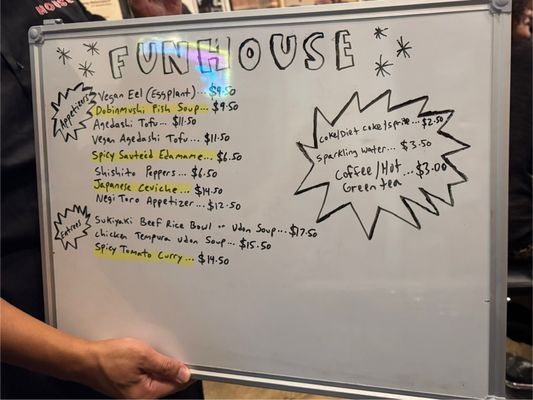 FUNHOUSE
Appetizers
Vegan Eel (Eggplant)... $9.50
Dobinmushi Fish Soup... $9.50
Agedashi Tofu... $11.50
Vegan Agedashi Tofu... $11.50
Spicy Sauteéd Edamame... $6.50
Shishito Peppers... $6.50
Japanese Ceviche... $14.50
Negi Toro Appetizer... $12.50
Entrees
Sukiyaki Beef Rice Bowl or Udon Soup... $17.50
Chicken Tempura Udon Soup... $15.50
Spicy Tomato Curry... $14.50
Coke/Diet Coke/Sprite... $2.50
Sparkling Water... $3.50
Coffee/Hot
Green tea ...$3.00